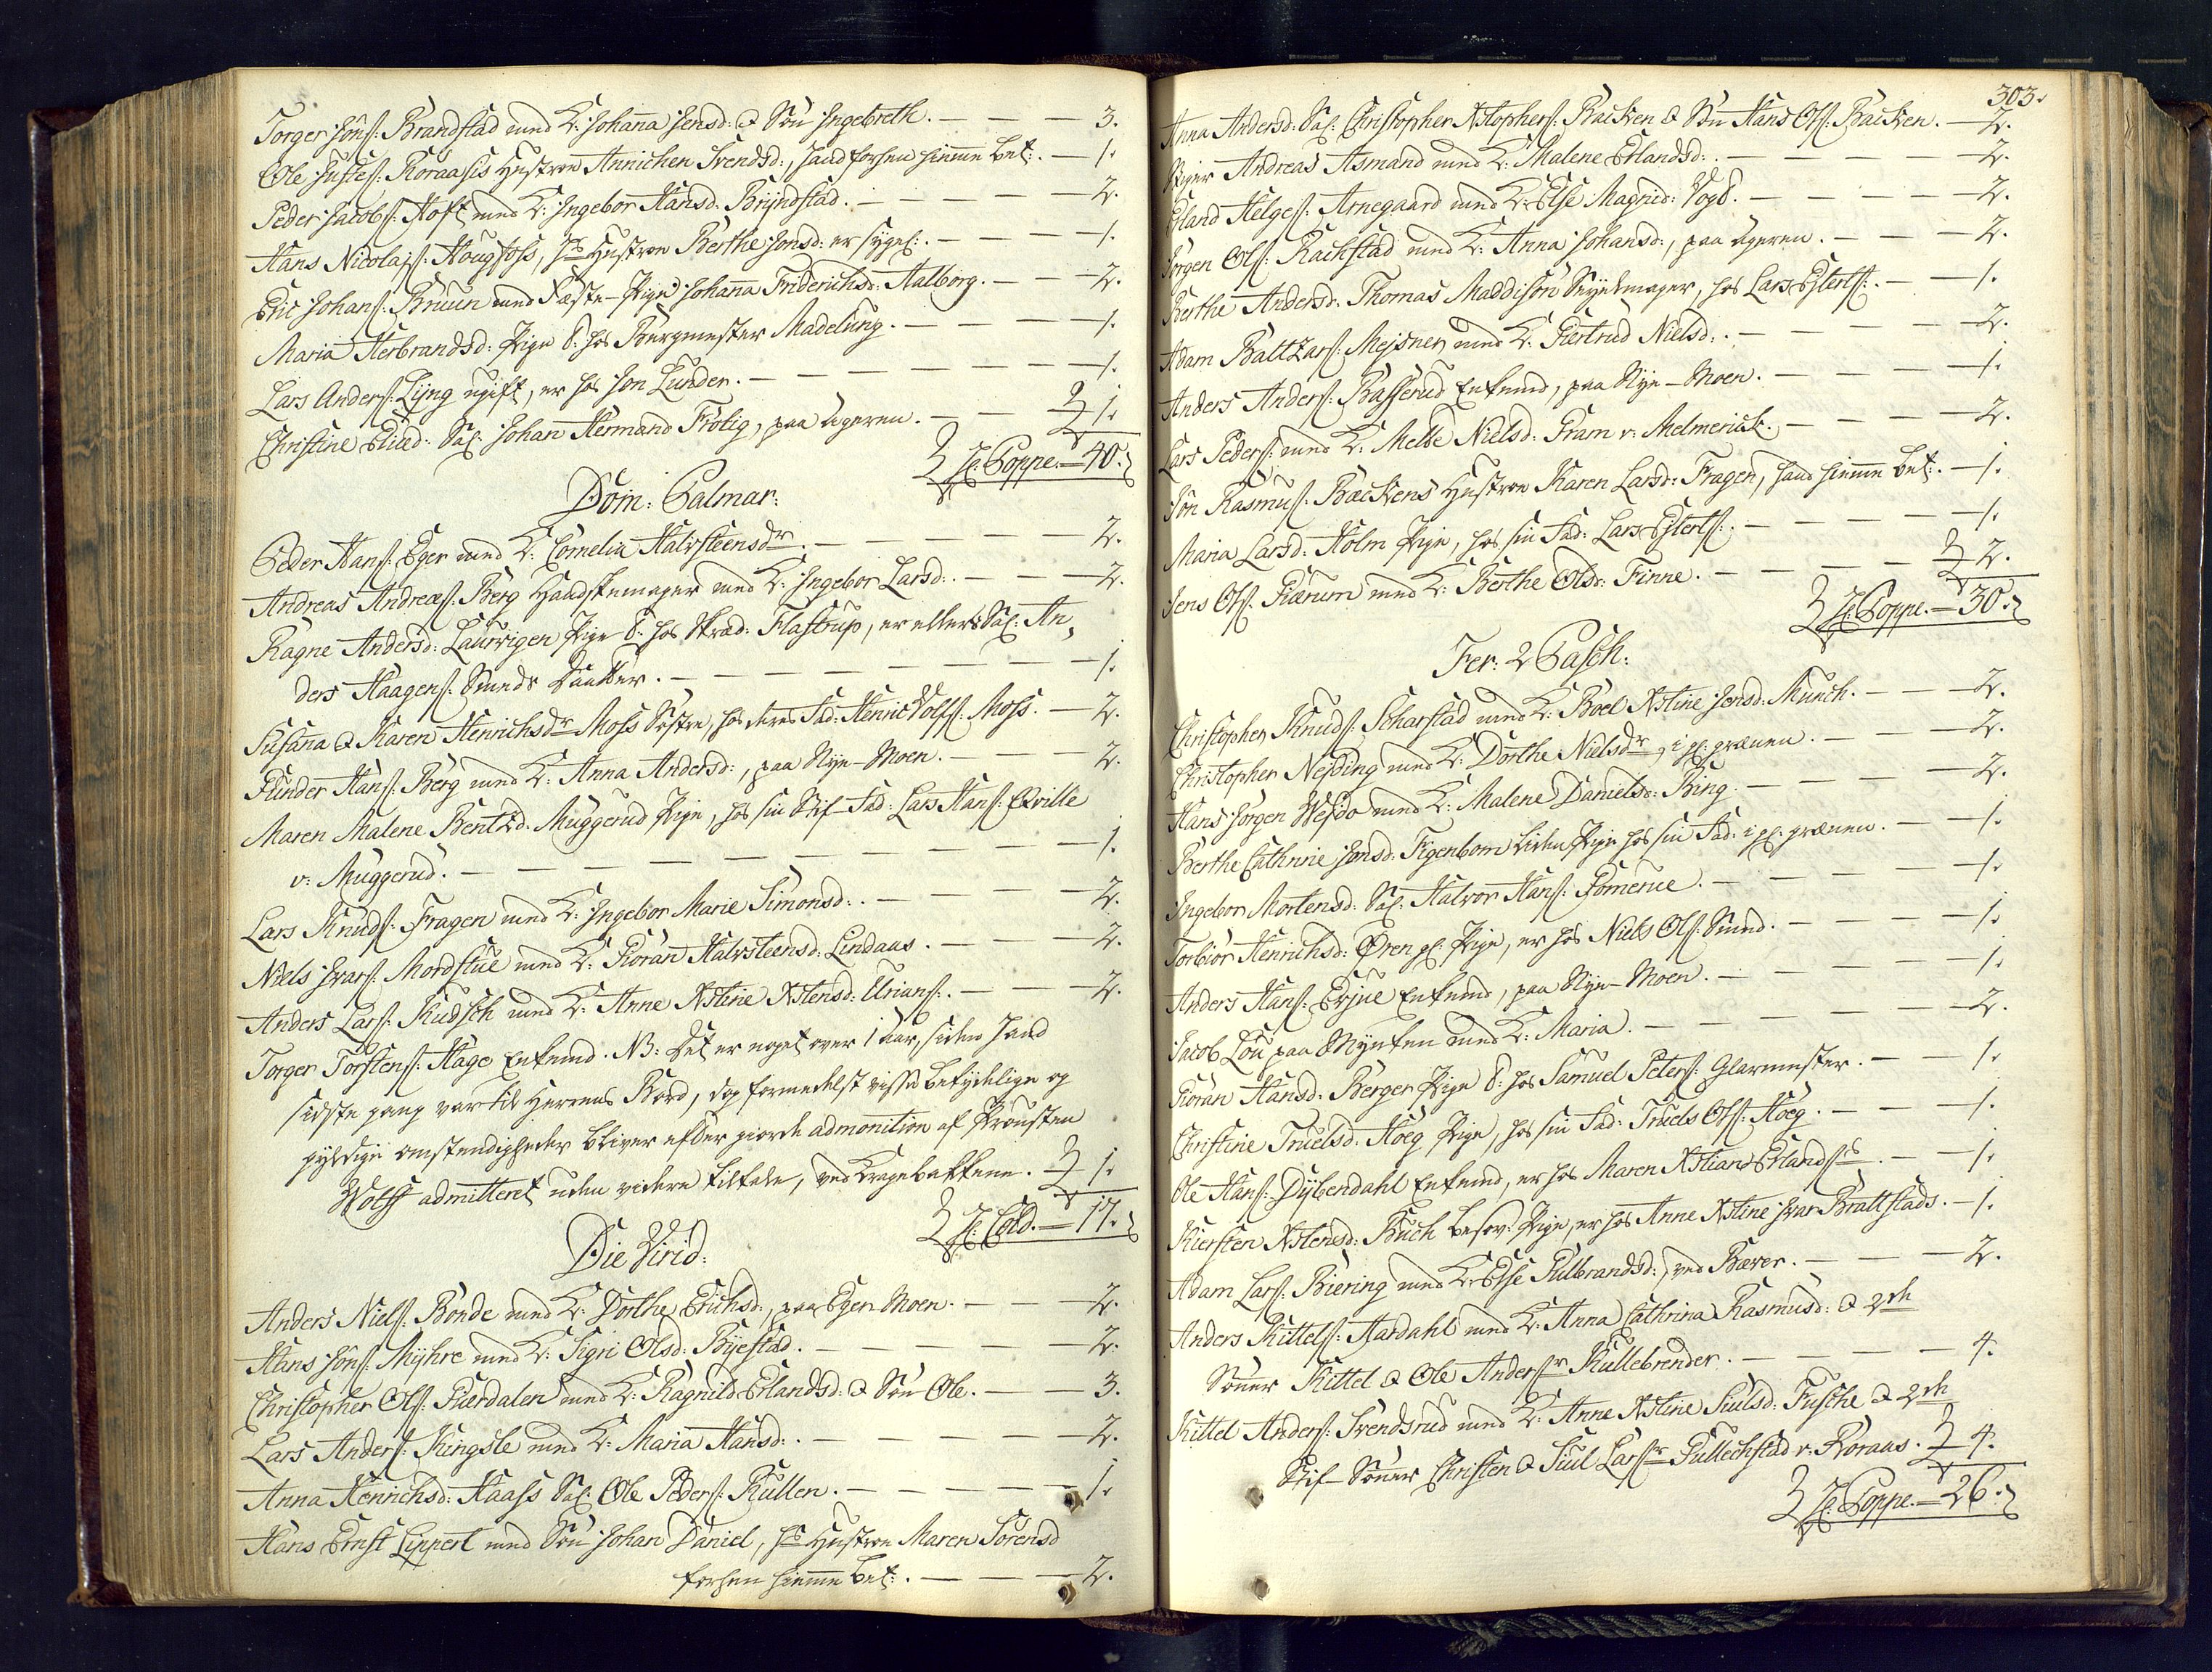 Torger Jöns: Brandstad med K: Johanna Jensd: & Sön Ingebreth. — — — 3.
Ole Justes: Koraasis Hustroe Annichen Svendsd:, hand forhen hiemme bet:. — 1.
Peder Jacobs: Hoft med K: Ingebor Hansd: Bryndstad. — — — 2.
Hans Nicolajs: Hougfoss, hs Hustroe Berthe Jonsd: er sygel:. — — — 1.
Eric Johans: Bruun med Fæste-Pige Johanna Friderichsd: Aalborg. — — 2.
Maria Herbrandsd: Pige t: hos Bergmester Madelung. — — — 1.
Lars Anders: Lyng ugift, er hos Jon Lunder. — — — — 1.
Christine Eliæd: Sal: Johan Hermand Frölig, paa Ageren. — — 1.
H: Poppe. — 40.
Dom: Palmar:
Peder Hans: Eger med K: Cornelia Halvsteensdr. — — — 2.
Andreas Andreæs: Berg Handskemager med K: Ingebor Larsd:. — — 2.
Ragne Andersd: Laurvigen Pige t: hos Skræd: Flastrup, er ellers Sal: An,
ders Haagens: Smeds Daatter. — — — — — 1.
Susanna & Karen Henrichsdr Moss Søstre, hos deres Fad: Henric Wolfs: Moss. — 2.
Gunder Hans: Berg med K: Anna Andersd:, paa Nye-Moen. — — 2.
Maren Malene Bentzd: Muggerud Pige, hos sin Stif-Fad: Lars Hans: Qville
v: Muggerud. — — — — — — 1.
Lars Knuds: Fragen med K: Ingebor Marie Simonsd:. — — — 2.
Niels Ivars: Mordstue med K: Göran Halvsteensd: Lindaas. — — — 2.
Anders Lars: Kudsch med K: Anne Xstine Xstensd: Urians:. — — — 2.
Torger Torstens: Hage Enkemd. NB: Det er noget over 1 Aar, siden hand
sidste gang var til Herrens Bord, dog formedelst visse betydelige og
gyldige omstendigheder bliver efter giorde admonition af Provsten
Wolff admitteret uden videre tiltale, ved Kragebakkene. 1.
H: Cold. — 17.
Die Virid:
Anders Niels: Bonde med K: Dorthe Erichsd:, paa Eger-Moen. — — 2.
Hans Jöns: Myhre med K: Sigri Olsd: Byestad. — — — — 2.
Christopher Ols: Fuerdalen med K: Ragnild Erlandsd: & Sön Ole. — — 3.
Lars Anders: Kingsle med K: Maria Hansd:. — — — — 2.
Anna Henrichsd: Haass Sal: Ole Peders: Kullen. — — — — 1.
Hans Ernst Lippert med Sön Johan Daniel, hs Hustroe Maren Sörensd
forhen hiemme bet:. — — — 2.
303.
Anna Andersd: Sal: Christopher Xstophers: Backen & Sön Hans Ols: Backen. — 2.
Andreas Asmand med K: Malene Erlandsd:. — — — — 2.
Erland Helges: Arnegaard med K: Else Magnid: Vogt. — — — — 2.
Jörgen Ols: Rachstad med K: Anna Johansd:, paa Ageren. — — — 2.
Berthe Andersd: Thomas Maddison, hos Lars Eilerts:. — 1.
Adam Baltzars: Mejsner med K: Giertrud Nielsd:. — — — — 2.
Anders Anders: Basserud Enkemd, paa Nye-Moen. — — — 1.
Lars Peders: med K: Mette Nielsd: Gram v: Melmerick. — — — 2.
Jön Rasmus: Backens Hustroe Karen Larsd: Fragen, hand hiemme bet:. — 1.
Maria Larsd: Holm Pige, hos sin Fad: Lars Eilerts:. — — — 1.
Jens Ols: Giærum med K: Berthe Olsd: Finne. — — — — 2.
H: Poppe. — 30.
Fer: 2 Pasch:
Christopher Knuds: Scharstad med K: Boel Xstine Jensd: Munch. — — 2.
Christopher Nejding med K: Dorthe Nielsdr, i gl: grænen. — — 2.
Hans Jörgen Wejdo med K: Malene Danielsd: Ring. — — — 2.
Berthe Cathrine Jonsd: Figenbom liden Pige hos sin Fad: i gl: grænen. — 1.
Ingebor Mortensd: Sal: Halvor Hans: Gomerue. — — — 1.
Torbiör Henrichsd: Ören gl: Pige, er hos Niels Ols: Smed. — — — 1.
Anders Hans: Erjue Enkemd, paa Nye-Moen. — — — — 1.
Jacob Lou paa Mynten med K: Maria. — — — — 2.
Göran Hansd: Berger Pige t: hos Samuel Peters: Glarmester. — — 1.
Christine Truelsd: Höeg Pige, hos sin Fad: Truels Ols: Höeg. — — — 1.
Ole Hans: Dybendahl Enkemd, er hos Maren Xstians Erlands:. — — 1.
Kiersten Xstensd: Buch besov: Pige, er hos Anne Xstine Ivar Brattstads. — 1.
Adam Lars: Biering med K: Else Gulbrandsd:, ved Bæver. — — — 2.
Anders Kittels: Aardahl med K: Anna Cathrina Rasmusd: & 2de
Sönner Kittel & Ole Andersr Kullebrender. — — — — 4.
Kittel Anders: Svendsrud med K: Anne Xstine Juulsd: Fusche & 2de
Stif-Sönner Christen & Juul Larssr Gullechstad v: Koraas. 4.
H: Poppe. — 26.